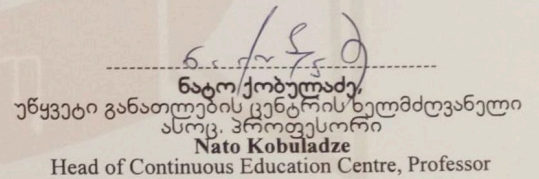 ნატო ქობულაძე,
უწყვეტი განათლების ცენტრის ხელმძღვანელი
ასოც. პროფესორი
Nato Kobuladze
Head of Continuous Education Centre, Professor